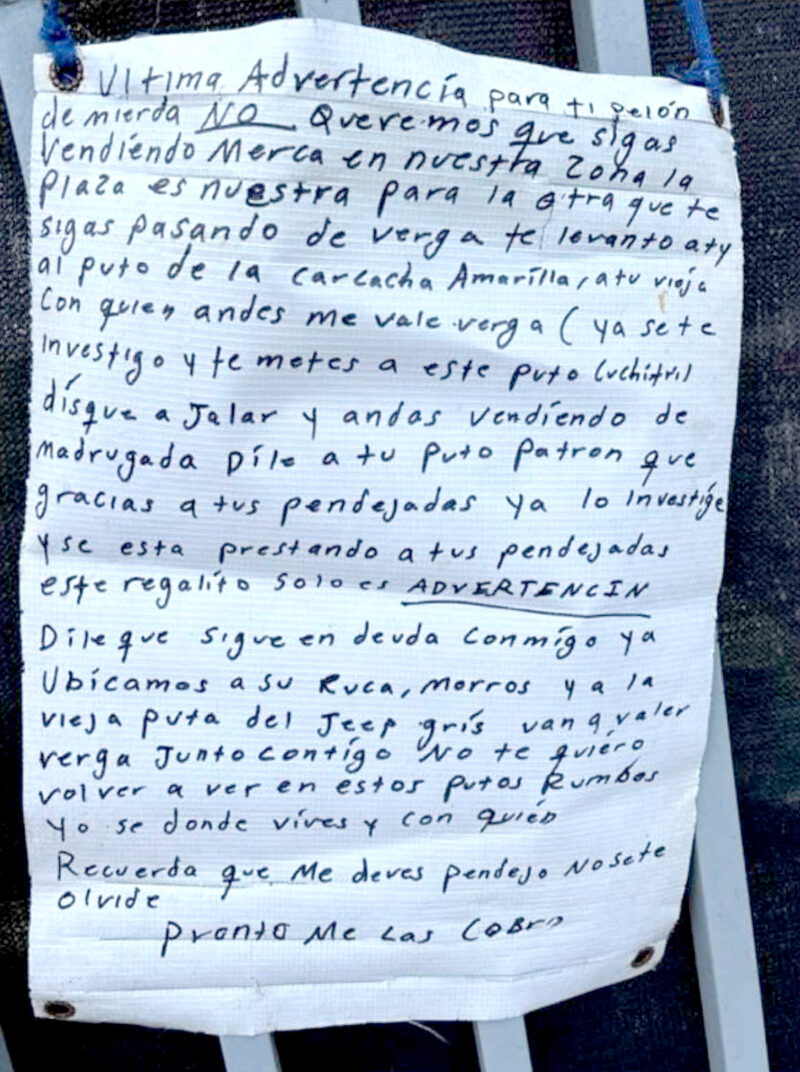 Ultima Advertencia para ti pelón
de mierda NO Queremos que sigas
Vendiendo Merca en nuestra Zona la
Plaza es nuestra para la otra que te
sigas pasando de verga te levanto a ty
al puto de la carcacha Amarilla, a tu vieja
Con quien andes me vale verga ( ya se te
investigo y te metes a este puto Cuchitril
disque a Jalar y andas vendiendo de
Madrugada Dile a tu puto Patron que
gracias a tus pendejadas ya lo investige
y se esta prestando a tus pendejadas
este regalito solo es ADVERTENCIN
Dile que sigue en deuda conmigo ya
Ubicamos a su Ruca, morros y a la
vieja puta del Jeep gris van a valer
verga Junto contigo No te quiero
volver a ver en estos putos Rumbos
Yo se donde vives y con quien
Recuerda que Me deves pendejo No se te
olvide
Pronto Me Las Cobro